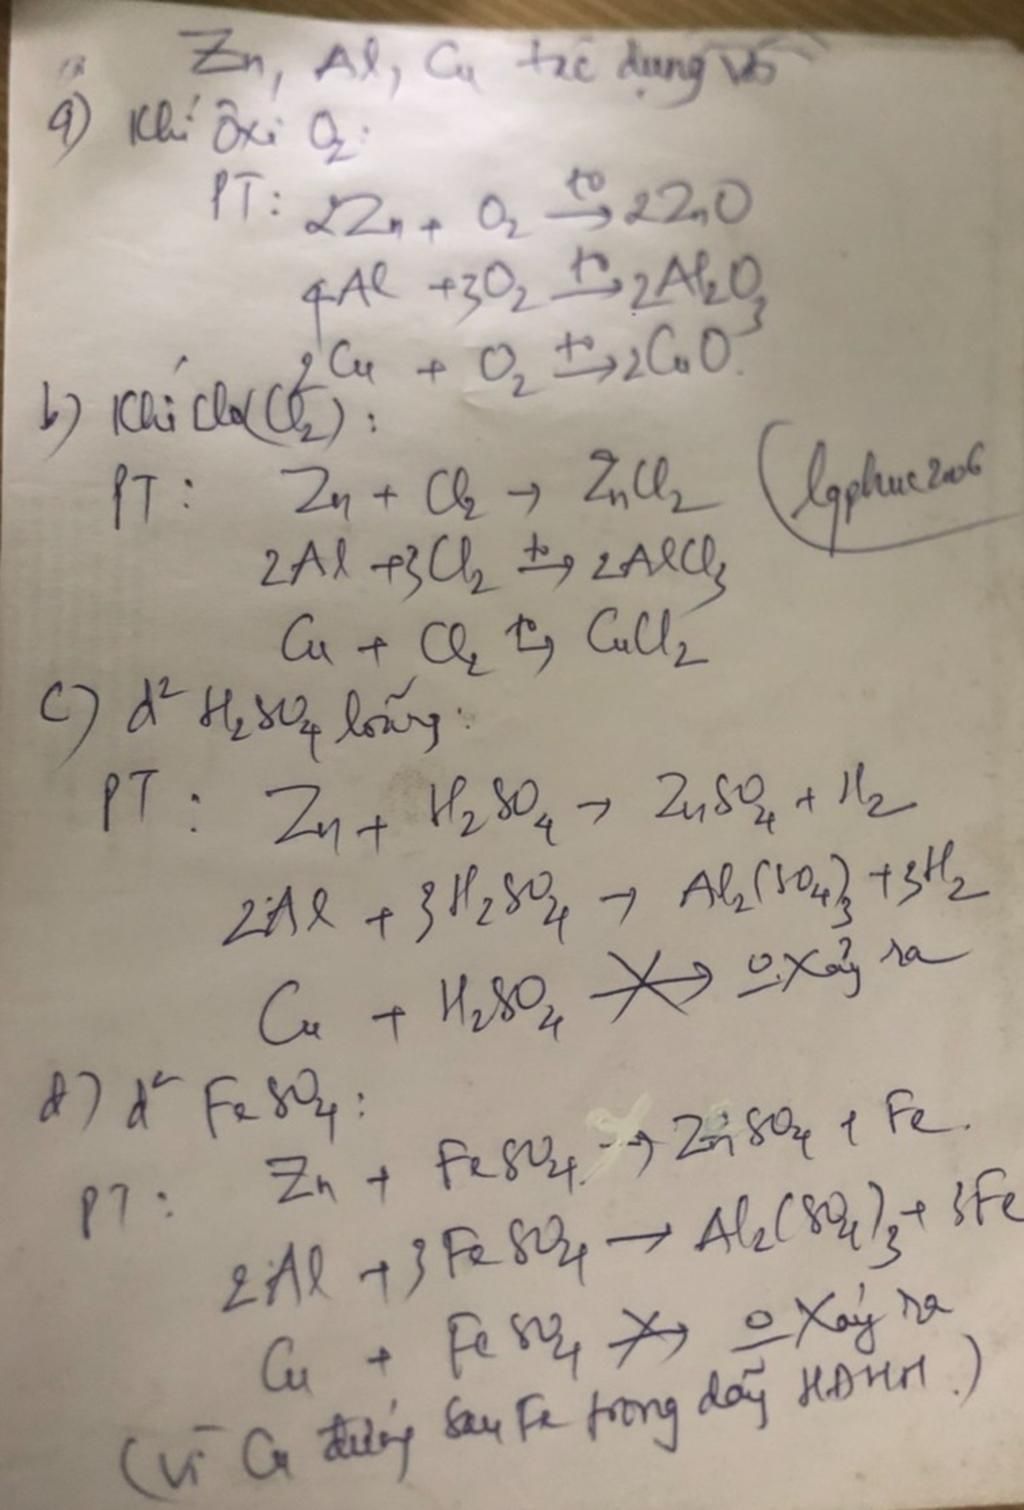 Zn, Al, Cu tác dụng với
a) Khí ôxi O₂:
PT: 2Zn + O₂ →(t⁰) 2ZnO
4Al + 3O₂ →(t⁰) 2Al₂O₃
2Cu + O₂ →(t⁰) 2CuO.
b) Khí clo (Cl₂):
PT: Zn + Cl₂ → ZnCl₂ (lqphuc2006
2Al + 3Cl₂ →(t⁰) 2AlCl₃
Cu + Cl₂ →(t⁰) CuCl₂
c) d² H₂SO₄ loãng:
PT: Zn + H₂SO₄ → ZnSO₄ + H₂
2Al + 3H₂SO₄ → Al₂(SO₄)₃ + 3H₂
Cu + H₂SO₄ ↛ 0 xảy ra
d) d² FeSO₄:
PT: Zn + FeSO₄ → ZnSO₄ + Fe.
2Al + 3FeSO₄ → Al₂(SO₄)₃ + 3Fe
Cu + FeSO₄ ↛ 0 xảy ra
(vì Cu đứng sau Fe trong dãy HĐHH.)